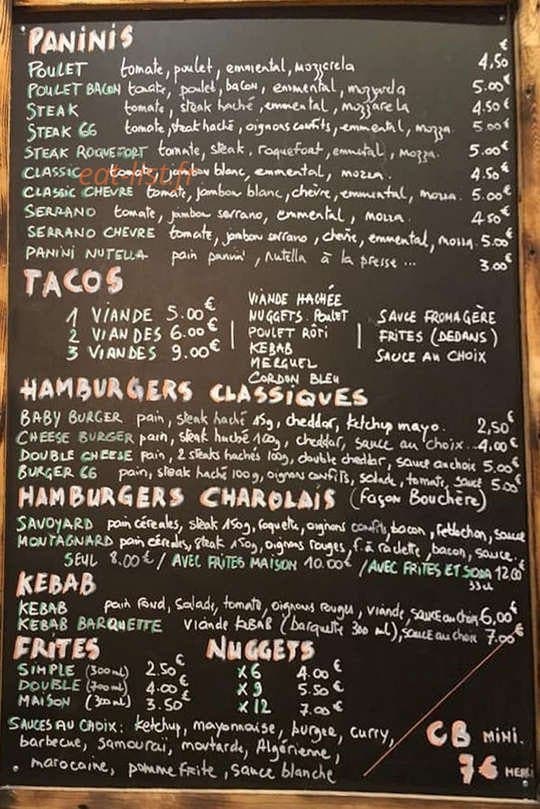 PANINIS €
POULET tomate, poulet, emmental, mozzerela 4,50
POULET BACON tomate, poulet, bacon, emmental, mozzarela 5.00€
STEAK tomate, steak haché, emmental, mozzarela 4.50€
STEAK GG tomate, steak haché, oignons confits, emmental, mozza. 5.00€
STEAK ROQUEFORT tomate, steak, roquefort, emmental, mozza. 5.00€
CLASSIC tomate, jambon blanc, emmental, mozza. 4.50€
CLASSIC CHEVRE tomate, jambon blanc, chèvre, emmental, mozza. 5.00€
SERRANO tomate, jambon serrano, emmental, mozza 4.50€
SERRANO CHEVRE tomate, jambon serrano, chèvre, emmental, mozza. 5.00€
PANINI NUTELLA pain panini, Nutella à la presse ... 3.00€
eat-list.fr
TACOS
1 VIANDE 5.00€
2 VIANDES 6.00€
3 VIANDES 9.00€
VIANDE HACHÉE
NUGGETS. POULET
POULET RÔTI
KEBAB
MERGUEL
CORDON BLEU
SAUCE FROMAGÈRE
FRITES (DEDANS)
SAUCE AU CHOIX
HAMBURGERS CLASSIQUES
BABY BURGER pain, steak haché 45g, cheddar, ketchup mayo. 2,50€
CHEESE BURGER pain, steak haché 100g, cheddar, sauce au choix.. 4.00€
DOUBLE CHEESE pain, 2 steaks hachés 100g, double cheddar, sauce au choix 5.00€
BURGER GG pain, steak haché 100g, oignons confits, salade, tomate, sauce 5.00€
HAMBURGERS CHAROLAIS (façon Bouchère)
SAVOYARD pain céréales, steak 150g, roquette, oignons confits, bacon, reblochon, sauce
MONTAGNARD pain céréales, steak 150g, oignons rouges, f. à raclette, bacon, sauce.
SEUL 8.00€ / AVEC FRITES MAISON 10.00€ / AVEC FRITES ET SODA 12.00€
33cl
KEBAB
KEBAB pain rond, salade, tomate, oignons rouges, viande, sauce au choix 6,00€
KEBAB BARQUETTE viande KEBAB (barquette 300 ml), sauce au choix 7.00€
FRITES
SIMPLE (300ml) 2.50€
DOUBLE (700ml) 4.00€
MAISON (300ml) 3.50€
NUGGETS
X 6 4.00€
X 9 5.50€
X 12 7.00€
SAUCES AU CHOIX: ketchup, mayonnaise, burger, curry,
barbecue, samouraï, moutarde, Algérienne,
. marocaine, pomme frite, sauce blanche
CB MINI.
7€ MERCI